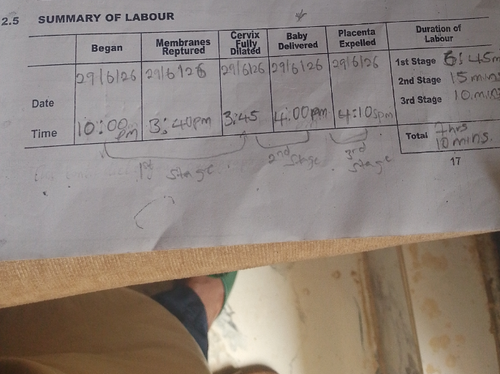 2.5 SUMMARY OF LABOUR
Began Membranes Reptured Cervix Fully Dilated Baby Delivered Placenta Expelled Duration of Labour
Date 29/6/26 29/6/26 29/6/26 29/6/26 29/6/26
Time 10:00pm 3:40pm 3:45 4:00pm 4:10
1st Stage 6:45m
2nd Stage 15 mins
3rd Stage 10 mins
Total 7hrs 10mins.
1st Stage 2nd Stage 3rd Stage
17